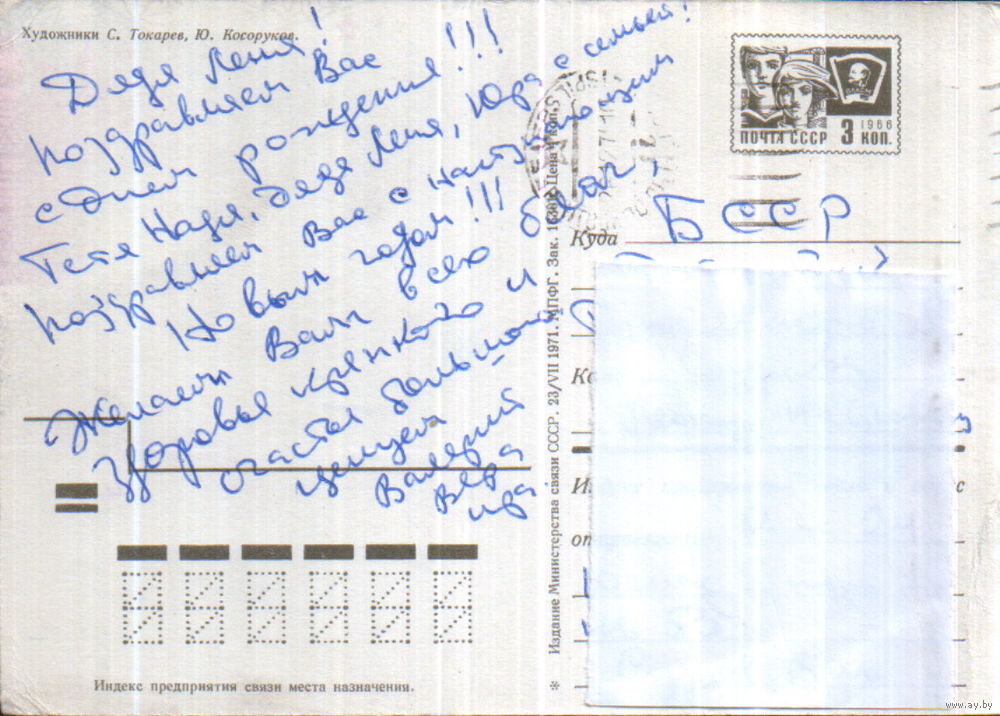 Художники С. Токарев, Ю. Косоруков.
Дядя Леня!
поздравляем Вас
с днем рождения!!!
Тетя Надя, дядя Леня, Юра с семьей!
поздравляем Вас с наступающим
Новым годом!!!
Желаем Вам всех благ,
здоровья крепкого и
счастья большого.
целуем
Валерий
Вера
Ира.
Индекс предприятия связи места назначения.
Издание Министерства связи СССР. 23/VII 1971. МПФГ. Зак. Цена 4 коп.
ПОЧТА СССР 3 КОП.
1966
Куда БССР
www.ay.by